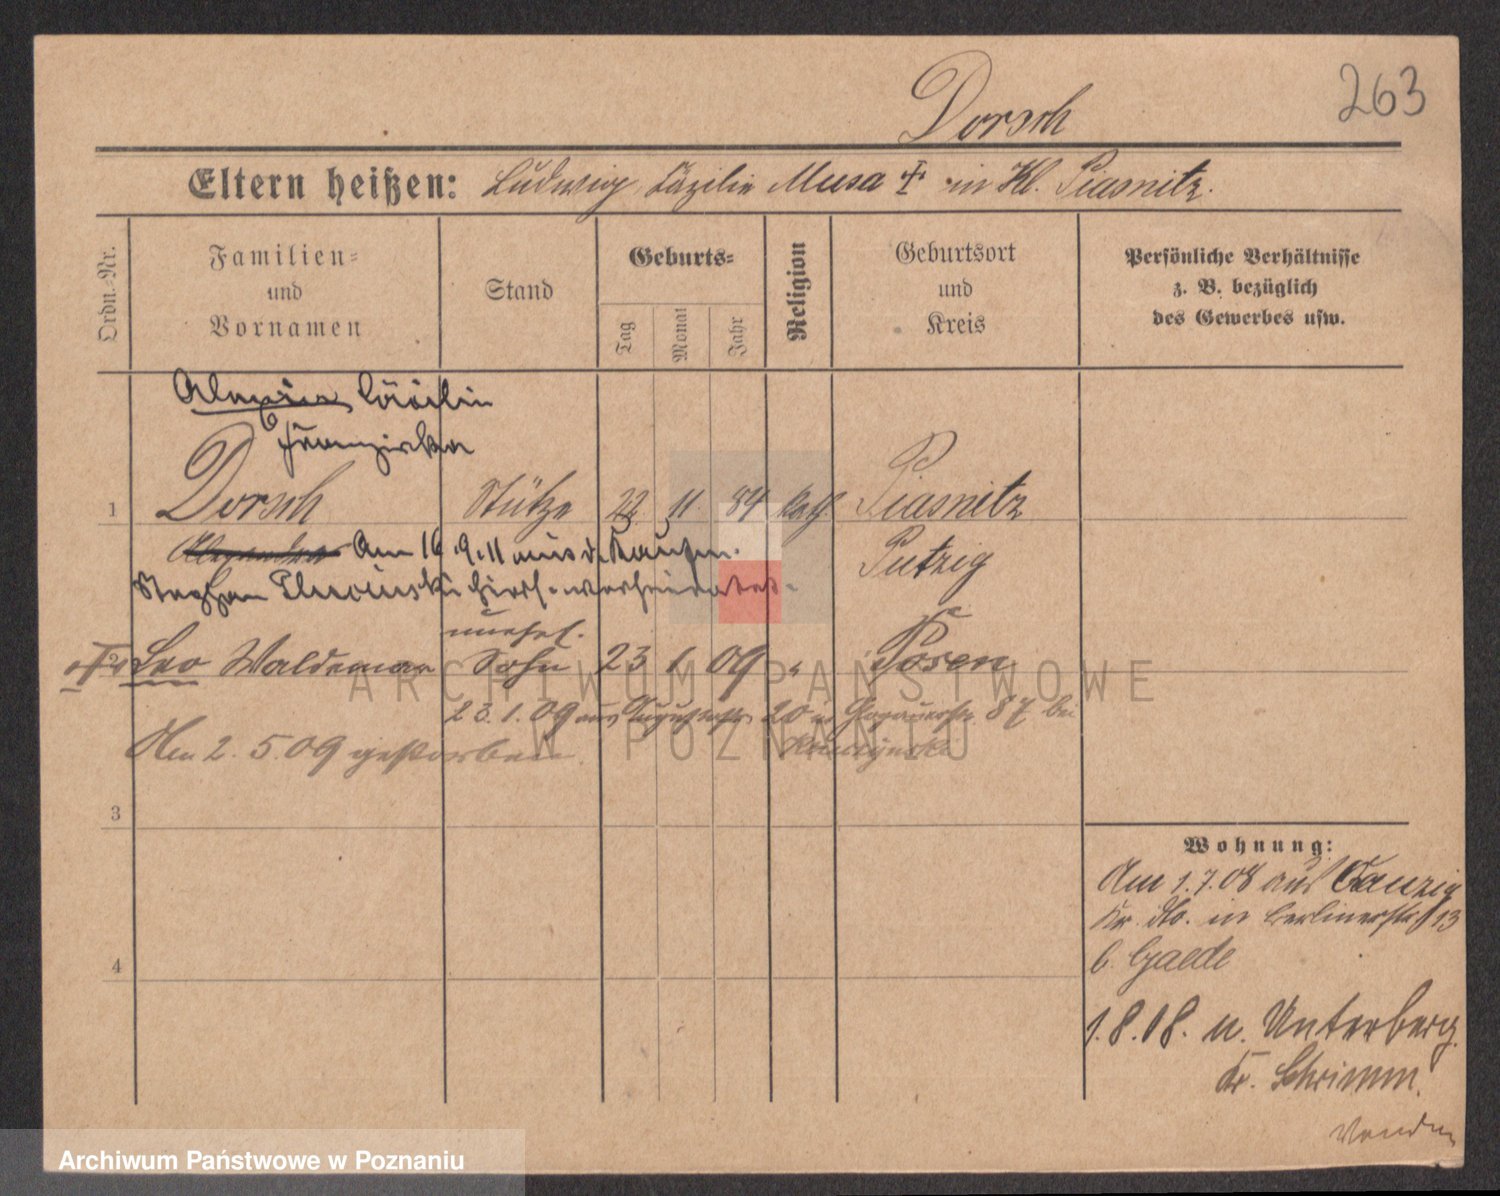 263
Dorsch
Eltern heißen: Ludwig Cäzilie Musa † in Kl. Piasnitz.
Ordn.-Nr.
Familien-
und
Vornamen
Stand
Geburts-
Tag
Monat
Jahr
Religion
Geburtsort
und
Kreis
Persönliche Verhältnisse
z. B. bezüglich
des Gewerbes usw.
Cäcilie
Franziska
1 Dorsch Stütze 22 11 84 kath Piasnitz
Am 16.9.11 mit d. Kaufm. Putzig
Stephan verheiratet.
unehel.
2 Leo Waldemar Sohn 23 1 09 " Posen
23.1.09 aus 20 in Glogauerstr. 87 bei
Am 2.5.09 gestorben
3
4
Wohnung:
Am 1.7.08 aus Danzig
Kr. dto. in Berlinerstr. 13
b. Gaede
1.8.08. n. Unterberg
Kr. Schrimm.
ARCHIWUM PAŃSTWOWE
W POZNANIU
Archiwum Państwowe w Poznaniu